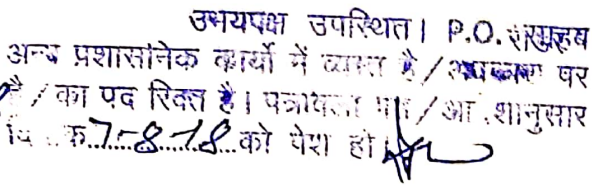 उभयपक्ष उपस्थित। P.O. साहब
अन्य प्रशासनिक कार्यों में व्यस्त है / अवकाश पर
है / का पद रिक्त है। पत्रावली / आ.शानुसार
दि क 7-8-18 को पेश हो